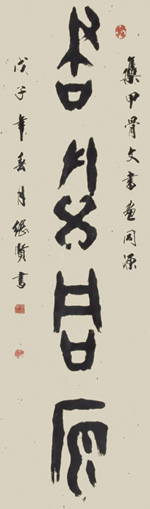 集甲骨文書畫同源
書畫同源
戊子年春月繼賢書